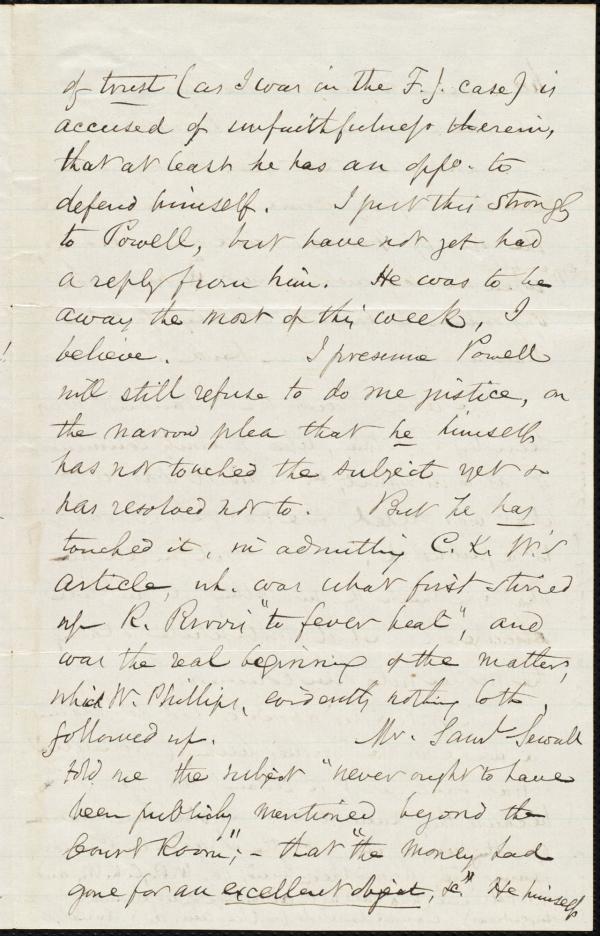 of trust (as I was in the F. J. case) is
accused of unfaithfulness therein,
that at least he has an oppo. to
defend himself. I put this strongly
to Powell, but have not yet had
a reply from him. He was to be
away the most of this week, I
believe. I presume Powell
will still refuse to do me justice, on
the narrow plea that he himself
has not touched the subject yet &
has resolved not to. But he has
touched it, in admitting C. K. W.'s
article, wh. was what first stirred
up R. "to fever heat", and
was the real beginning of the matter,
which W. Phillips, evidently nothing loth,
followed up. Mr. Saml Sewall
told me the subject "never ought to have
been publicly mentioned beyond the
Court Room"; - that "the money had
gone for an excellent object, &c" He himself